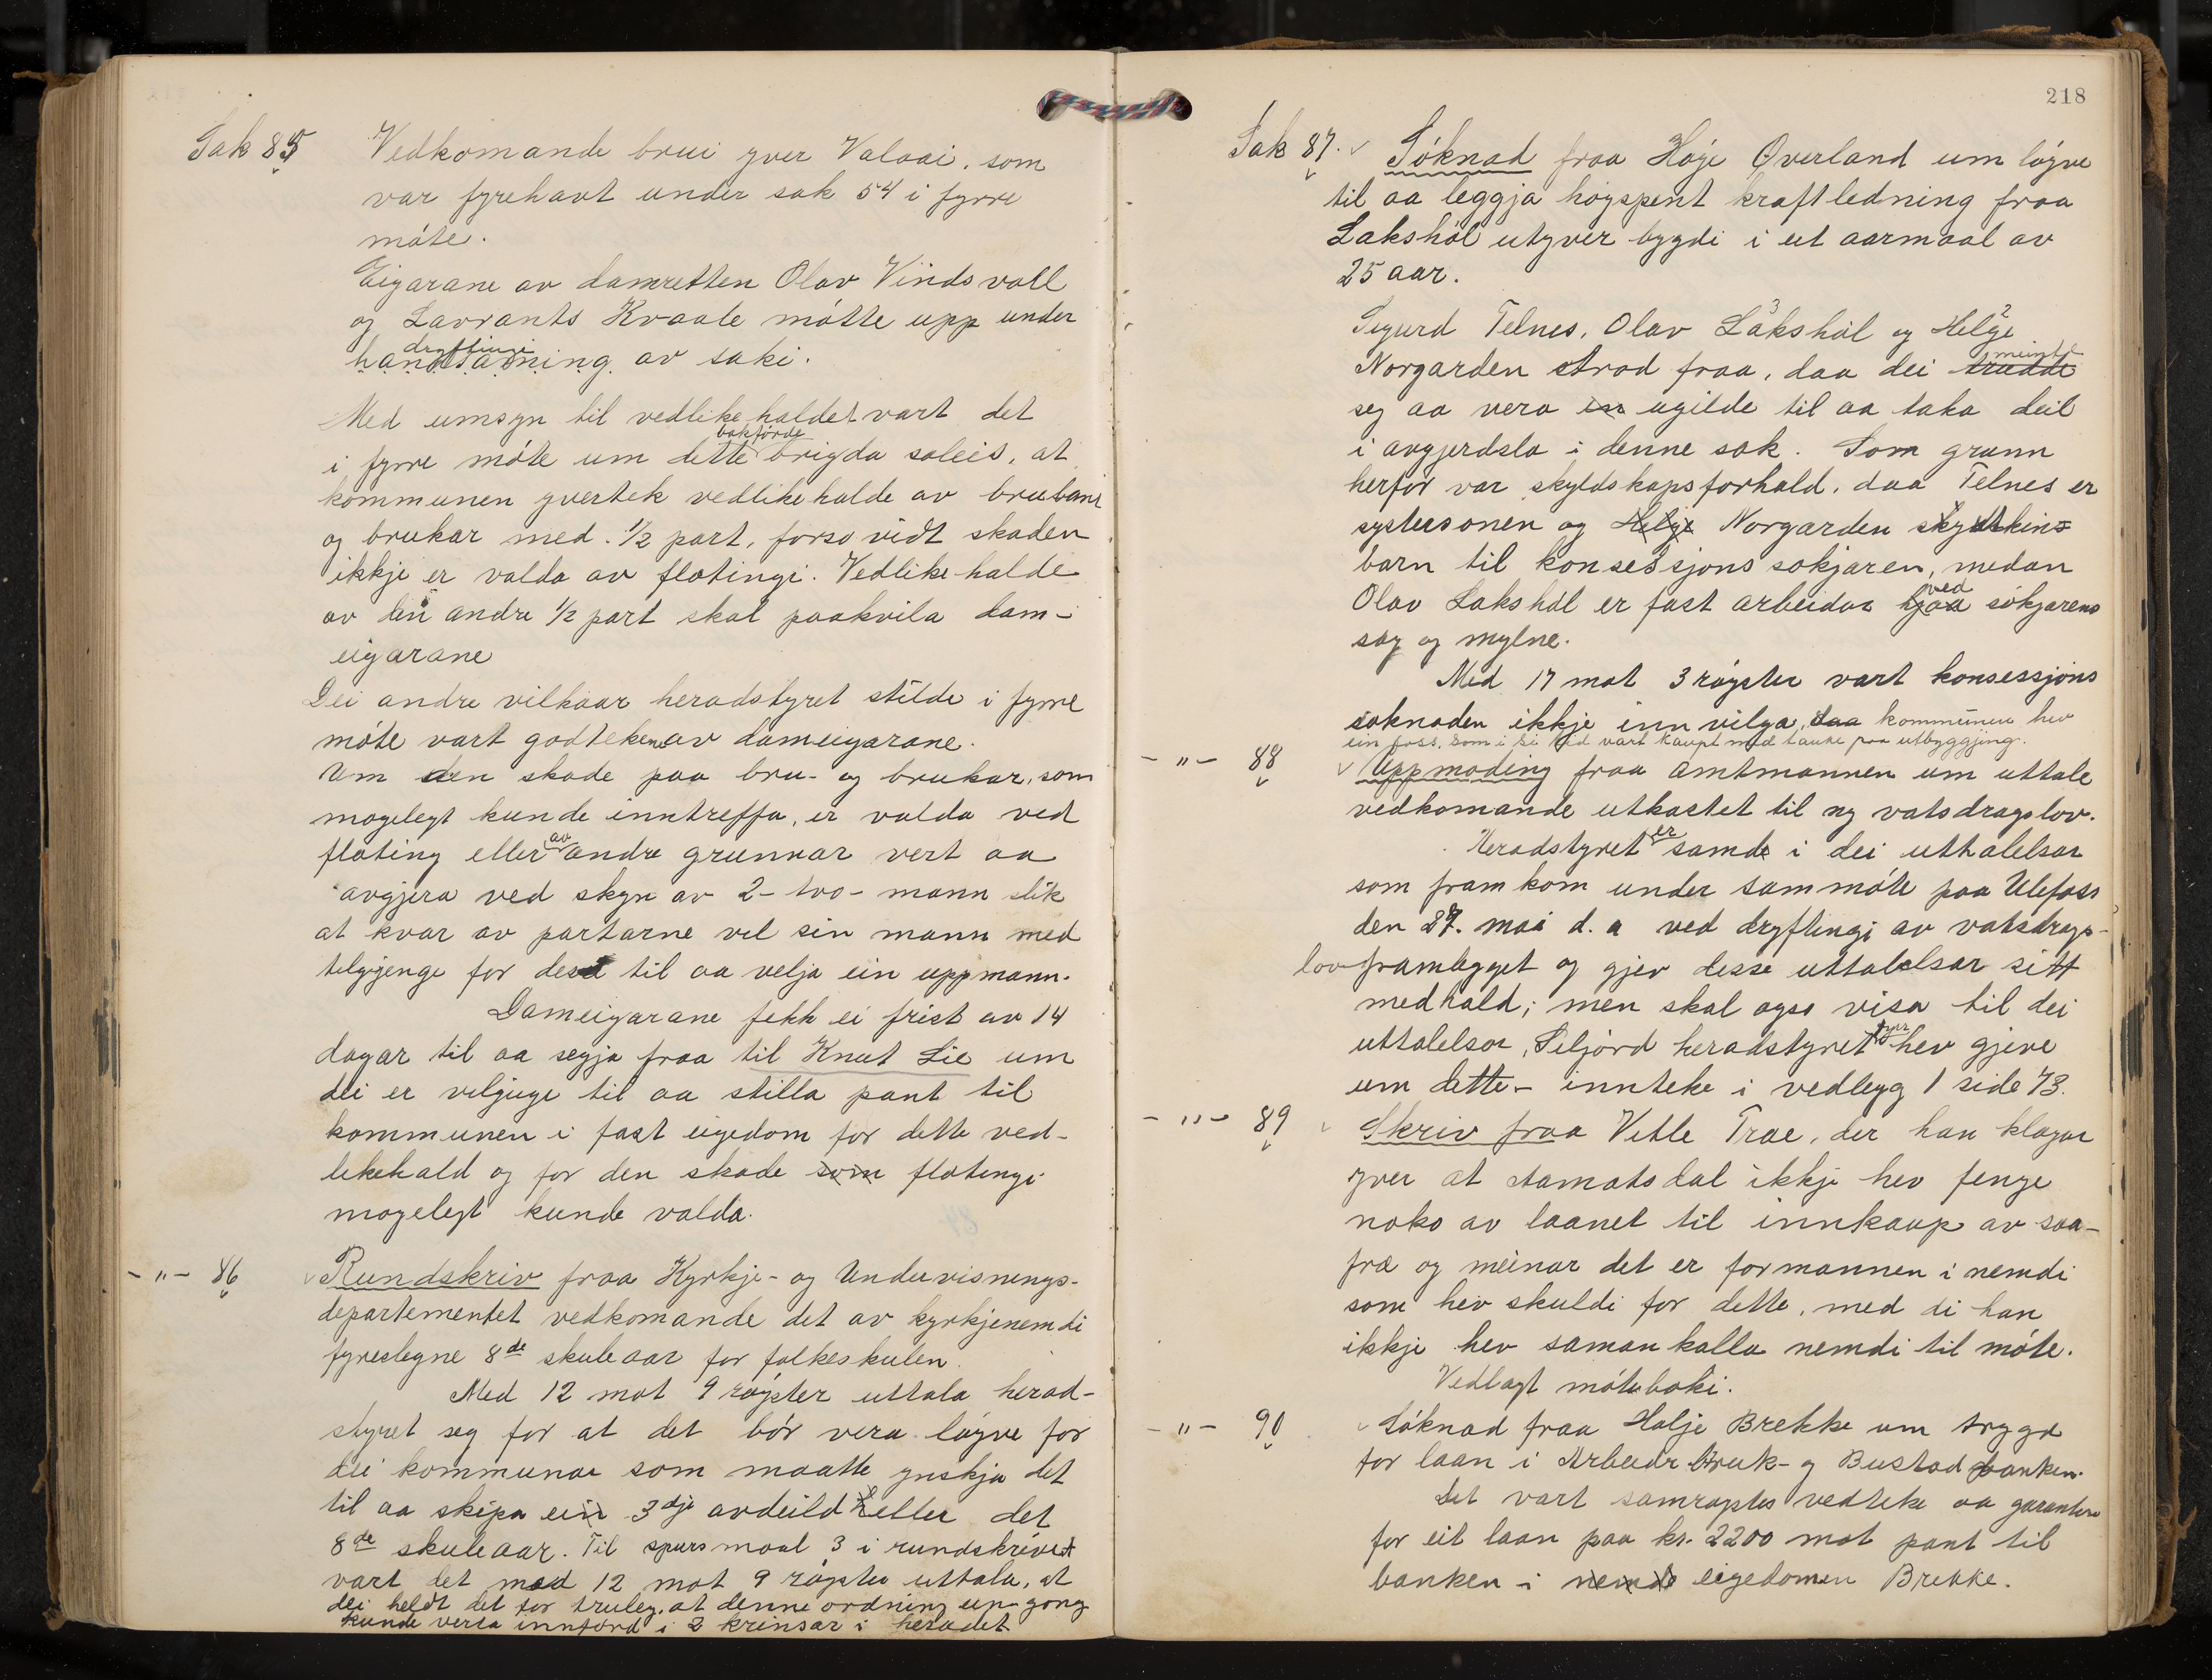 Sak 85 Vedkomande brui yver Valaai, som
var fyrehavt under sak 54 i fyrre
móte.
Eigarane av damretten Olav Vindsvoll
og Lavrants Kvaale mótte upp under
dryftingi
handsaming av saki.
Med umsyn til vedlikehaldet vart det
bokfórde
i fyrre móte um dette brigda soleis, at
kommunen yvertek vedlikehalde av brubani
og brukar med 1/2 part, forso vidt skaden
ikkje er valda av flotingi. Vedlikehalde
av den andre 1/2 part skal paakvila dam-
eigarane
Dei andre vilkaar heradstyret stilde i fyrre
móte vart godtekne av dameigarane.
Um den skade paa bru- og brukar, som
mogelegt kunde inntreffa, er valda ved
floting eller av andre grunnar vert aa
avgjera ved skyn av 2- tvo- mann slik
at kvar av partarne vel sin mann med
tilgjenge for desse til aa velja ein uppmann.
Dameigarane fekk ei frist av 14
dagar til aa segja fraa til Knut Lie um
dei er viljuge til aa stilla pant til
kommunen i fast eigedom for dette ved-
likehald og for den skade som flotingi
mogelegt kunde valda.
-"- 86 Rundskriv fraa Kyrkje- og Undervisnings-
departementet vedkomande det av kyrkjenemdi
fyreslegne 8de skuleaar for folkeskulen.
Med 12 mot 9 róyster uttala herad-
styret seg for at det bór vera lóyve for
dei kommunar som maatte ynskja det
til aa skipa ein 3dje avdeild eller det
8de skuleaar. Til spursmaal 3 i rundskrivet
vart det med 12 mot 9 róyster uttala, at
dei heldt det for truleg, at denne ordning ein gong
kunde verta innförd i 2 krinsar i heradet
218
Sak 87. Sóknad fraa Høje Overland um lóyve
til aa leggja hogspent kraftledning fraa
Lakshól utyver bygdi i eit aarmaal av
25 aar.
Sigurd Telnes, Olav Lakshól og Helge
3 2
Norgarden strod fraa, daa dei trudde meinte
seg aa vera ugilde til aa taka deil
i avgjerdsla i denne sak. Som grunn
herfór var skyldskapsforhald, daa Telnes er
systersonen og Helge Norgarden skyldskins
barn til konsessjonssokjaren, medan
Olav Lakshól er fast arbeidar hjaa ved sókjarens
sag og mylne.
Med 17 mot 3 róyster vart konsessjons
soknaden ikkje innvilga, daa kommunen hev
ein foss, som i si tid vart kaupt med tanke paa utbyggjing.
-"- 88 Uppmoding fraa Amtmannen um uttale
vedkomande utkastet til ny vatsdragslov.
Heradstyret er samde i dei uttalelsar
som framkom under sammóte paa Ulefoss
den 27. mai d. a ved dryftingi av vatsdrags-
lovframlegget og gjev desse uttalelsar sitt
medhald; men skal ogso visa til dei
uttalelsar, Seljord heradstyret fyrr hev gjeve
um dette - innteke i vedlegg 1 side 73.
-"- 89 Skriv fraa Vetle Trae, der han klagar
yver at Aamotsdal ikkje hev fenge
noko av laanet til innkaup av saa-
frø og meinar det er formannen i nemdi
som hev skuldi for dette, med di han
ikkje hev samankalla nemdi til móte.
Vedlagt móteboki.
-"- 90 Sóknad fraa Halje Brekke um trygd
for laan i Arbeidarbruk- og Bustadbanken.
Det vart samróystes vedteke aa garantere
for eit laan paa kr. 2200 mot pant til
banken i eigedomen Brekke.